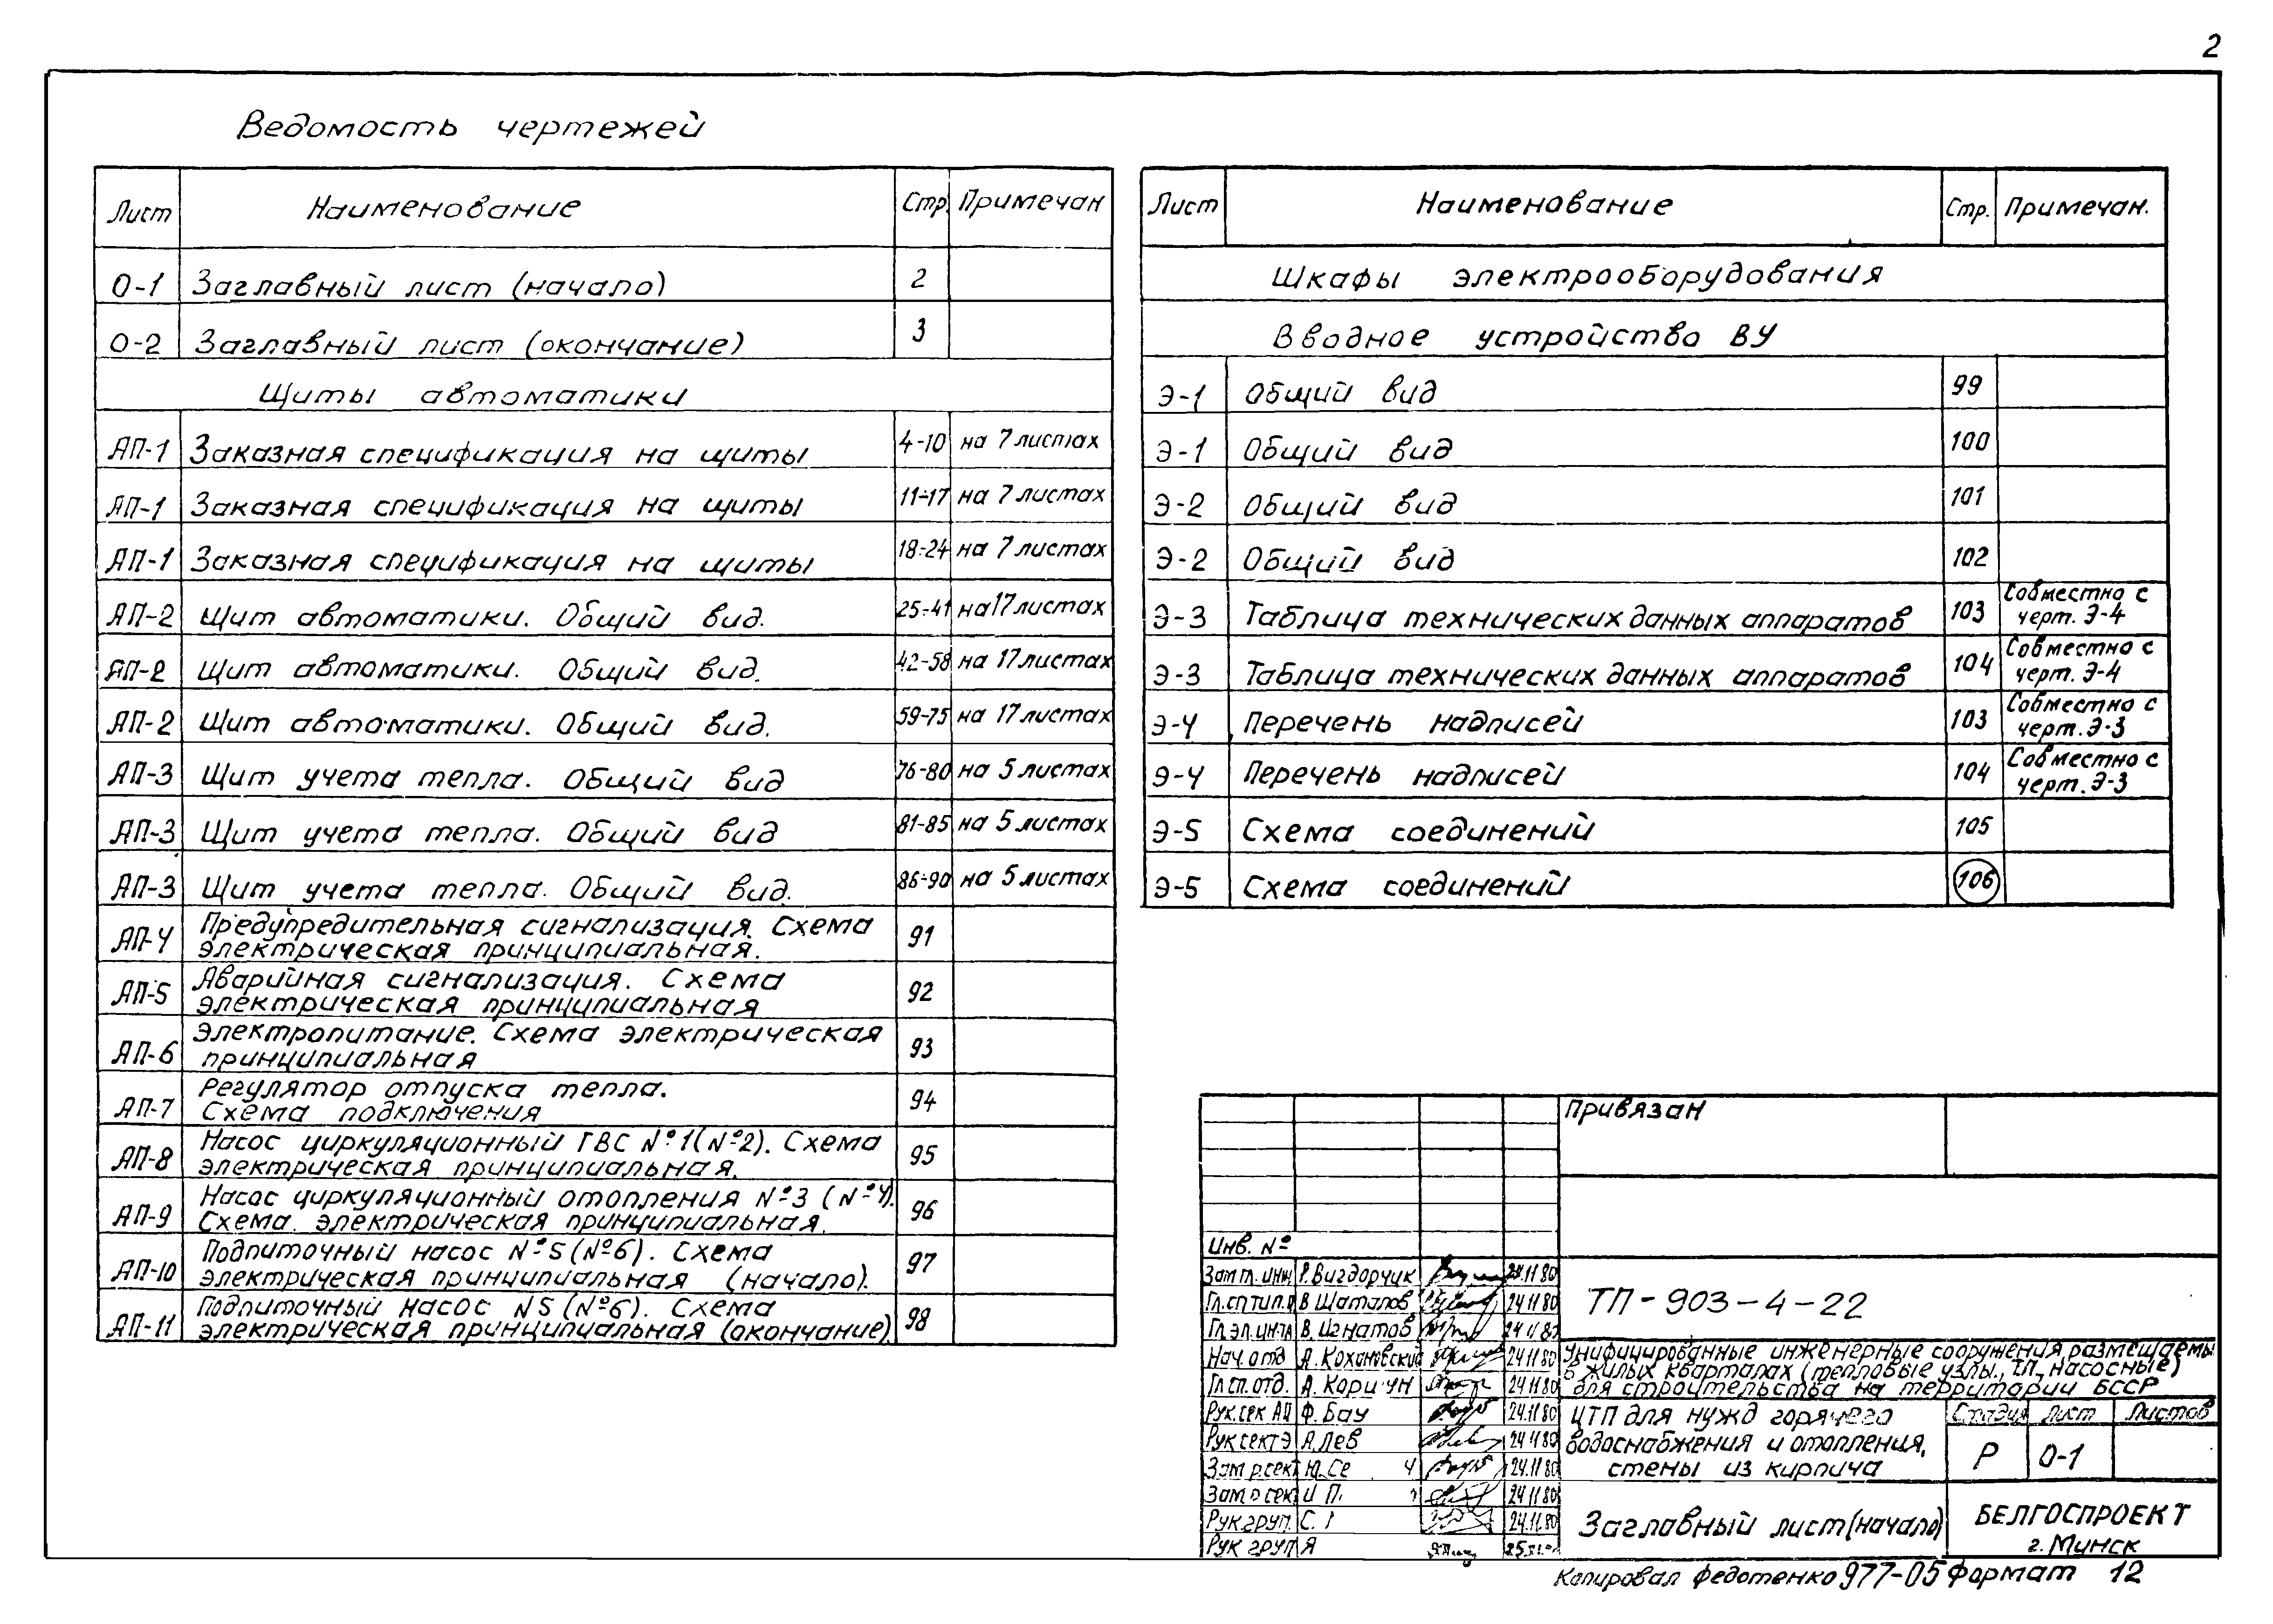 2
Ведомость чертежей
Лист Наименование Стр. Примечан
О-1 Заглавный лист (начало) 2
О-2 Заглавный лист (окончание) 3
Щиты автоматики
АП-1 Заказная спецификация на щиты 4-10 на 7 листах
АП-1 Заказная спецификация на щиты 11÷17 на 7 листах
АП-1 Заказная спецификация на щиты 18÷24 на 7 листах
АП-2 Щит автоматики. Общий вид. 25÷41 на 17 листах
АП-2 Щит автоматики. Общий вид. 42-58 на 17 листах
АП-2 Щит автоматики. Общий вид. 59-75 на 17 листах
АП-3 Щит учета тепла. Общий вид 76-80 на 5 листах
АП-3 Щит учета тепла. Общий вид 81-85 на 5 листах
АП-3 Щит учета тепла. Общий вид. 86÷90 на 5 листах
АП-4 Предупредительная сигнализация. Схема
электрическая принципиальная. 91
АП-5 Аварийная сигнализация. Схема
электрическая принципиальная 92
АП-6 Электропитание. Схема электрическая
принципиальная 93
АП-7 Регулятор отпуска тепла.
Схема подключения 94
АП-8 Насос циркуляционный ГВС №1(№2). Схема
электрическая принципиальная. 95
АП-9 Насос циркуляционный отопления №3 (№4).
Схема электрическая принципиальная. 96
АП-10 Подпиточный насос №5(№6). Схема
электрическая принципиальная (начало). 97
АП-11 Подпиточный насос N5 (№6). Схема
электрическая принципиальная (окончание). 98
Лист Наименование Стр. Примечан.
Шкафы электрооборудования
Вводное устройство ВУ
Э-1 Общий вид 99
Э-1 Общий вид 100
Э-2 Общий вид 101
Э-2 Общий вид 102
Э-3 Таблица технических данных аппаратов 103 Совместно с
черт. Э-4
Э-3 Таблица технических данных аппаратов 104 Совместно с
черт. Э-4
Э-4 Перечень надписей 103 Совместно с
черт. Э-3
Э-4 Перечень надписей 104 Совместно с
черт. Э-3
Э-5 Схема соединений 105
Э-5 Схема соединений 106
Привязан
Инв. №
Зам гл. инж Р. Вигдорчик 24.11 80
Гл.сп.тип.п В Шаталов 24 11 80
Гл.эл.ин-та В. Игнатов 24 11 80
Нач. отд А. Кохановский 24 11 80
Гл.сп. отд. А. Кор 24 11 80
Рук.сек АП Ф. Бау 24.11 80
Рук сект Э А. Лев 24 11 80
Зам р.сект Ю. Се 24.11 80
Зам р сект И П. 24 11 80
Рук груп. С. 24.11.80
Рук груп Я
ТП-903-4-22
Унифицированные инженерные сооружения, размещаемы
в жилых кварталах (тепловые узлы, ТП, насосные)
для строительства на территории БССР
ЦТП для нужд горячего
водоснабжения и отопления,
стены из кирпича
Стадия Лист Листов
Р О-1
Заглавный лист (начало)
БЕЛГОСПРОЕКТ
г. Минск
Копировал Федотенко 977-05 Формат 12